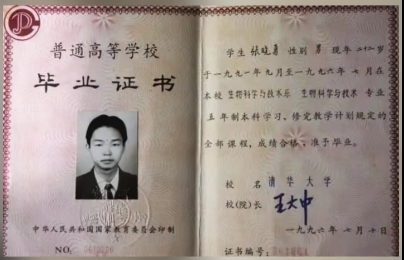 普通高等学校
毕业证书
中华人民共和国国家教育委员会印制
NO.
学生 张晓勇 性别 男 现年 二十二 岁
于一九九一年九月至一九九六年七月在
本校 生物科学与技术系 生物科学与技术 专业
五年制本科学习，修完教学计划规定的
全部课程，成绩合格，准予毕业。
校 名 清华大学
校(院)长 王大中
一九九六年七月十日
证书编号: